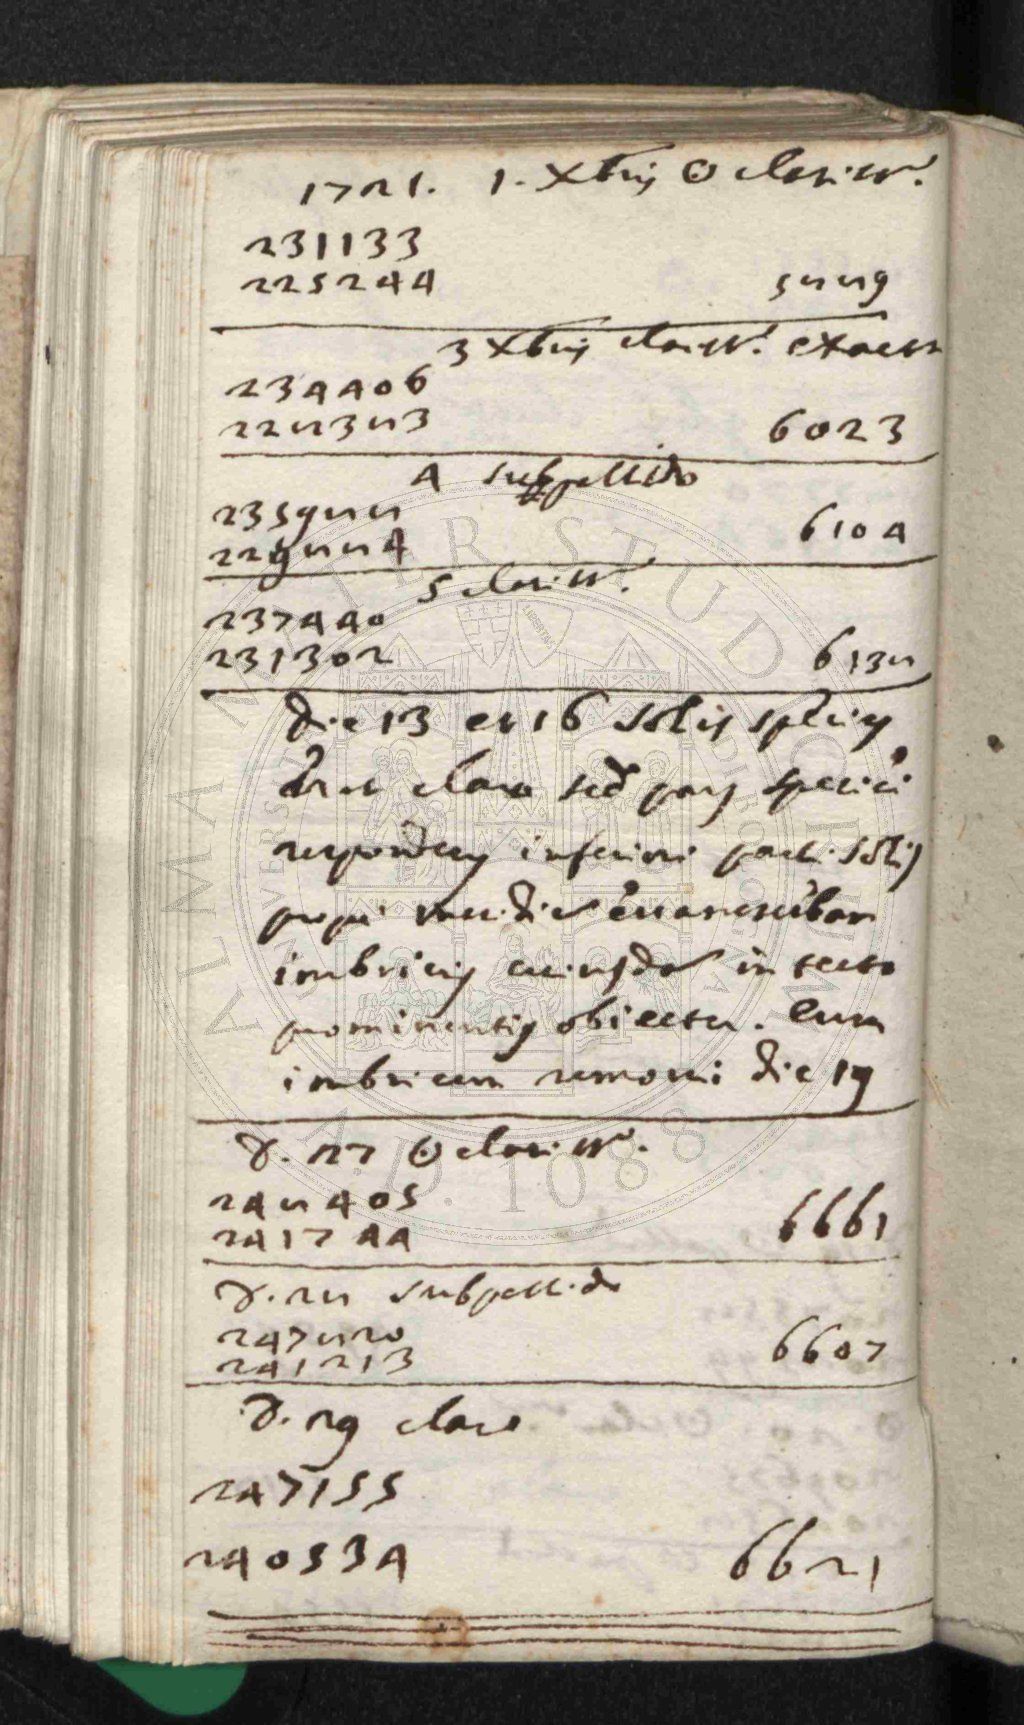 1721. 1. Xbris ☉ clariss.
231133
225244 5889
3 Xbris clariss. exacta
234406
228383 6023
4 subpallido
235988
229884 6104
5 clariss.
237440
231302 6138
Die 13 et 16 Solis species
erat clara sed pars speciei
respondens inferiori parti Solis
prope meridiem evanescebat
imbricis cuiusdam in tecto
prominentis obiectu. Eam
imbricem removi die 19
D. 27 ☉ clariss.
248405
241744 6661
D. 28 subpallido
247820
241213 6607
D. 29 claro
247155
240534 6621
ALMA MATER STUDIORUM
A.D. 1088